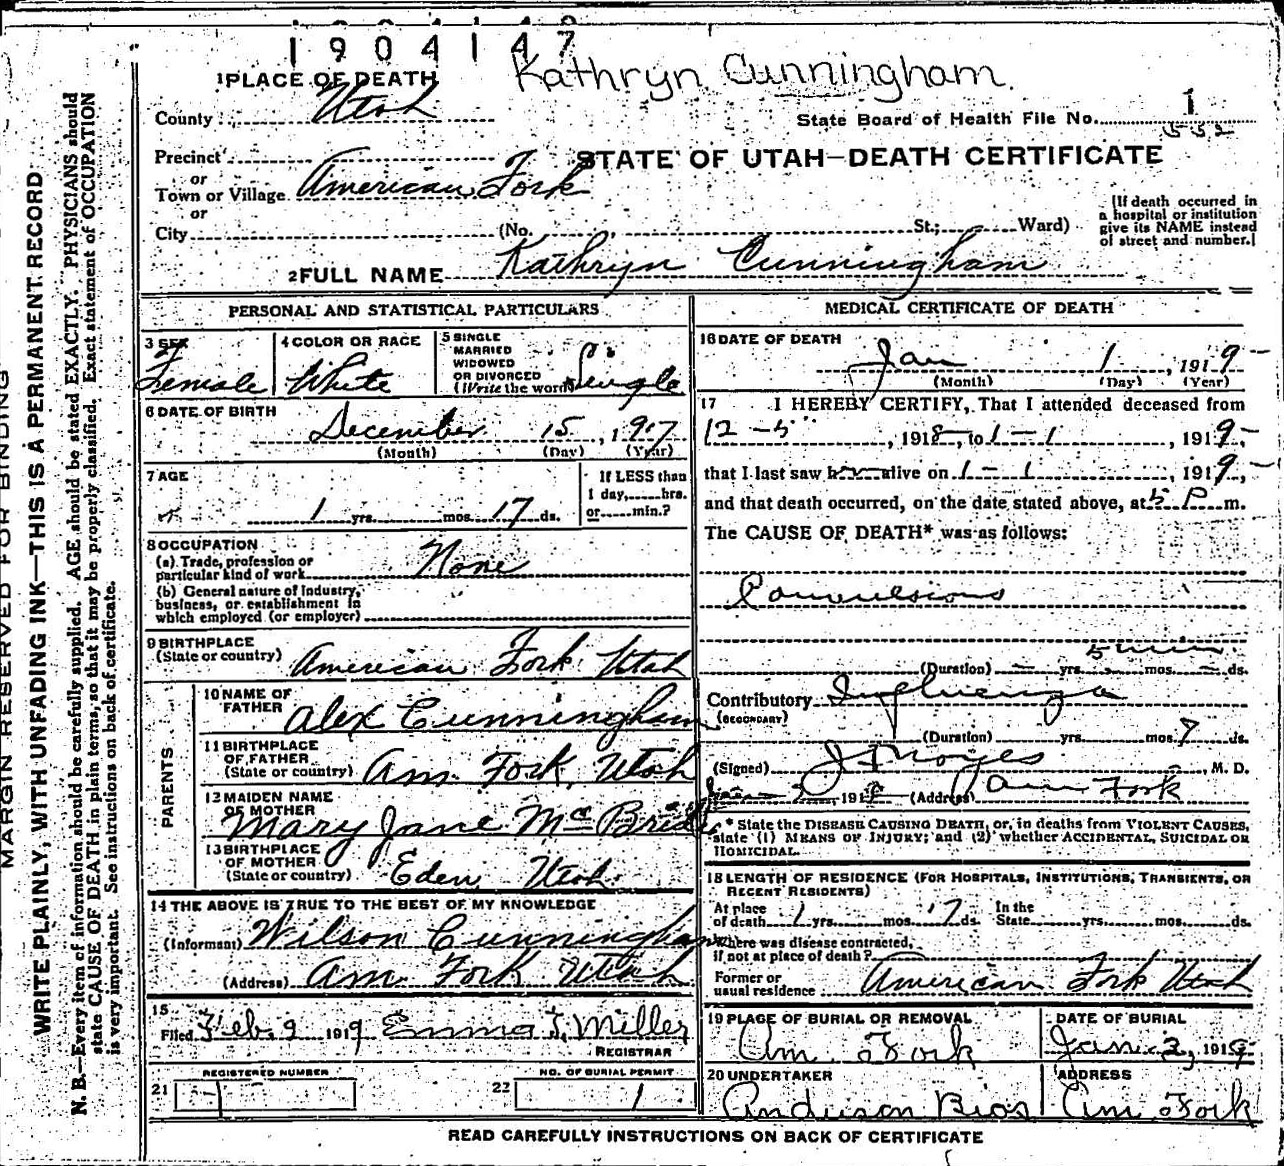 1904147
Kathryn Cunningham
1 PLACE OF DEATH
County Utah
State Board of Health File No. 1
532
Precinct
or
Town or Village American Fork
STATE OF UTAH—DEATH CERTIFICATE
or
City (No. St.; Ward)
[If death occurred in
a hospital or institution
give its NAME instead
of street and number.]
2 FULL NAME Kathryn Cunningham
PERSONAL AND STATISTICAL PARTICULARS
3 SEX
Female
4 COLOR OR RACE
White
5 SINGLE
MARRIED
WIDOWED
OR DIVORCED
(Write the word) Single
6 DATE OF BIRTH
December 15, 1917
(Month) (Day) (Year)
7 AGE
1 yrs. mos. 17 ds.
If LESS than
1 day, hrs.
or min.?
8 OCCUPATION
(a) Trade, profession or
particular kind of work None
(b) General nature of Industry,
business, or establishment in
which employed (or employer)
9 BIRTHPLACE
(State or country) American Fork Utah
PARENTS
10 NAME OF
FATHER Alex Cunningham
11 BIRTHPLACE
OF FATHER
(State or country) Am. Fork, Utah
12 MAIDEN NAME
OF MOTHER
Mary Jane McBride
13 BIRTHPLACE
OF MOTHER
(State or country) Eden Utah
14 THE ABOVE IS TRUE TO THE BEST OF MY KNOWLEDGE
(Informant) Wilson Cunningham
(Address) Am Fork Utah
15
Filed Feb. 9 1919 Emma J. Miller
REGISTRAR
REGISTERED NUMBER
21 1
NO. OF BURIAL PERMIT
22 1
MEDICAL CERTIFICATE OF DEATH
16 DATE OF DEATH
Jan 1, 1919
(Month) (Day) (Year)
17 I HEREBY CERTIFY, That I attended deceased from
12-5, 1918, to 1-1, 1919,
that I last saw her alive on 1-1, 1919,
and that death occurred, on the date stated above, at 5 P m.
The CAUSE OF DEATH* was as follows:
Convulsions
5 min.
(Duration) yrs. mos. ds.
Contributory Influenza
(SECONDARY)
(Duration) yrs. mos. 7 ds.
(Signed) J F Noyes, M. D.
191 (Address) Am Fork
* State the DISEASE CAUSING DEATH, or, in deaths from VIOLENT CAUSES,
state (1) MEANS OF INJURY; and (2) whether ACCIDENTAL, SUICIDAL OR
HOMICIDAL.
18 LENGTH OF RESIDENCE (FOR HOSPITALS, INSTITUTIONS, TRANSIENTS, OR
RECENT RESIDENTS)
At place
of death 1 yrs. mos. 17 ds.
In the
State yrs. mos. ds.
Where was disease contracted,
if not at place of death?
Former or
usual residence American Fork Utah
19 PLACE OF BURIAL OR REMOVAL
Am. Fork
DATE OF BURIAL
Jan. 3, 1919
20 UNDERTAKER
Anderson Bros
ADDRESS
Am Fork
READ CAREFULLY INSTRUCTIONS ON BACK OF CERTIFICATE
MARGIN RESERVED FOR BINDING
WRITE PLAINLY, WITH UNFADING INK—THIS IS A PERMANENT RECORD
N. B.—Every item of information should be carefully supplied. AGE should be stated EXACTLY. PHYSICIANS should
state CAUSE OF DEATH in plain terms, so that it may be properly classified. Exact statement of OCCUPATION
is very important. See instructions on back of certificate.